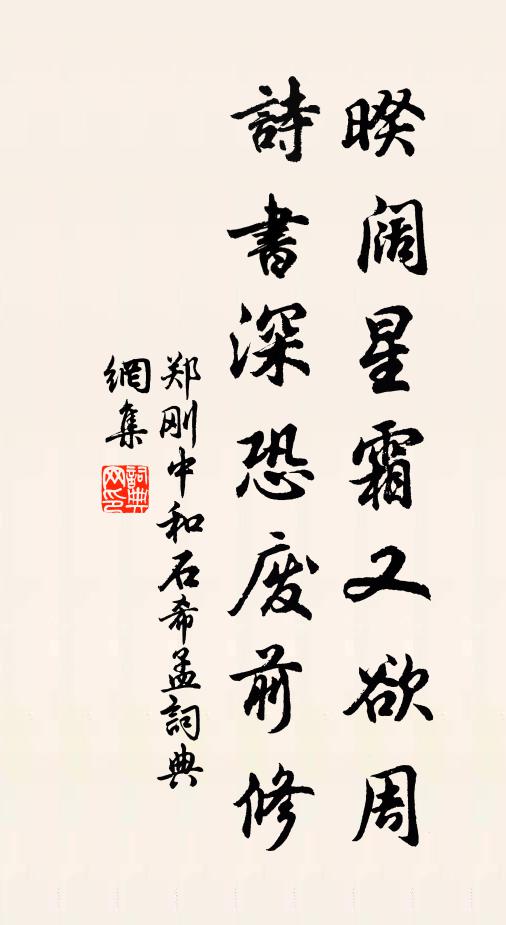 睽阔星霜又欲周
詩書深恐废前修
郑刚中和石希孟詞典
網集
詞典網印